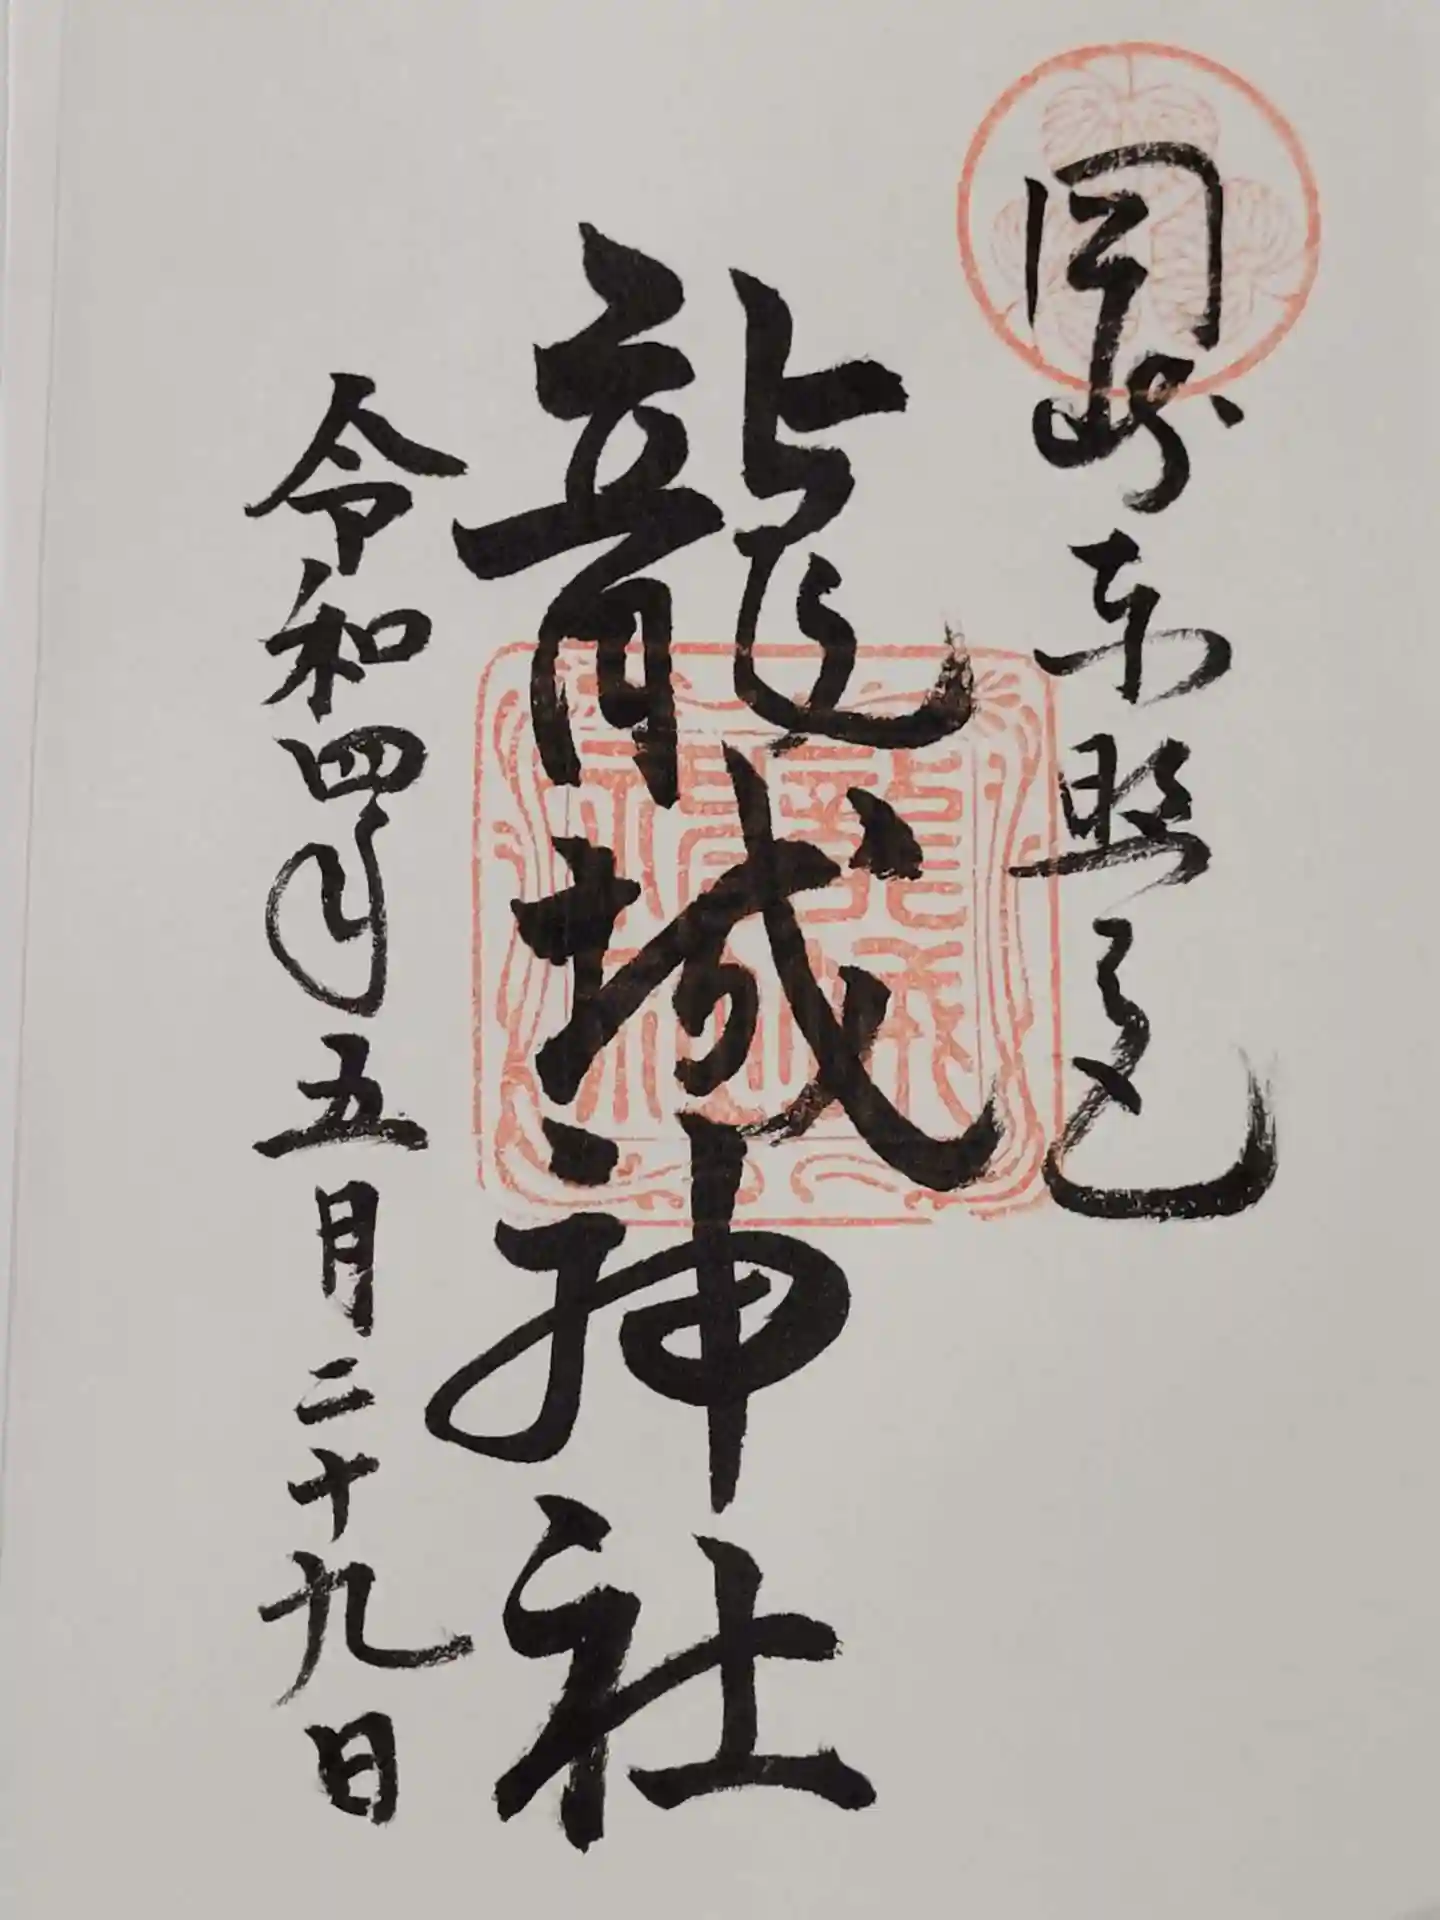 岡崎東照宮
龍城神社
令和四年五月二十九日
龍城
神社